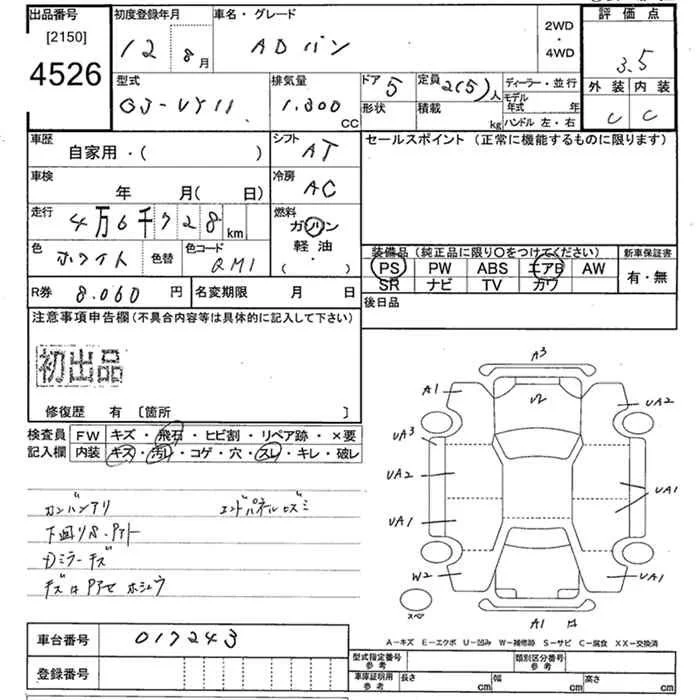 出品番号
[2150]
4526
初度登録年月
12 8月
車名・グレード
ADバン
2WD
・
4WD
評価点
3.5
外装 内装
C C
型式
GJ-VY11
排気量
1.300 CC
ドア 5
形状
定員 2(5)人
積載 kg
ディーラー・並行
モデル年式 年
ハンドル 左・右
車歴
自家用・( )
シフト
AT
セールスポイント (正常に機能するものに限ります)
車検
年 月( 日)
冷房
AC
走行
4万6千728km
燃料
ガソリン
軽油
( ・ )
色
ホワイト
色替
色コード
QM1
装備品 (純正品に限り〇をつけてください)
新車保証書
PS PW ABS エアB AW
SR ナビ TV カワ
有・無
R券 8.060 円
名変期限 月 日
後日品
注意事項申告欄 (不具合内容等は具体的に記入して下さい)
初出品
修復歴 有 〔箇所 〕
検査員記入欄
FW キズ・飛石・ヒビ割・リペア跡・×要
内装 キズ・汚レ・コゲ・穴・スレ・キレ・破レ
カンバンアリ
エンドパネルヒズミ
下回りS・アト
ミラーキズ
A3
A1
UA2
UA3
UA2
UA1
UA1
W2
UA1
A1
スペア
A-キズ E-エクボ U-凹み W-補修跡 S-サビ C-腐食 XX-交換済
車台番号 017243
登録番号
型式指定番号 参考
類別区分番号 参考
車庫証明用 参考
長さ cm 幅 cm 高さ cm